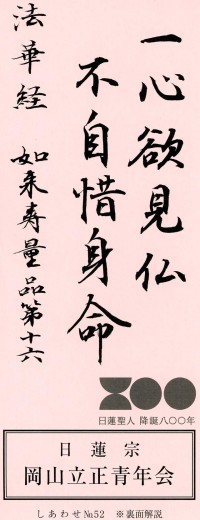 一心欲見仏
不自惜身命
法華経 如来寿量品第十六
800
日蓮聖人 降誕八〇〇年
日蓮宗
岡山立正青年会
しあわせ№52 ※裏面解説